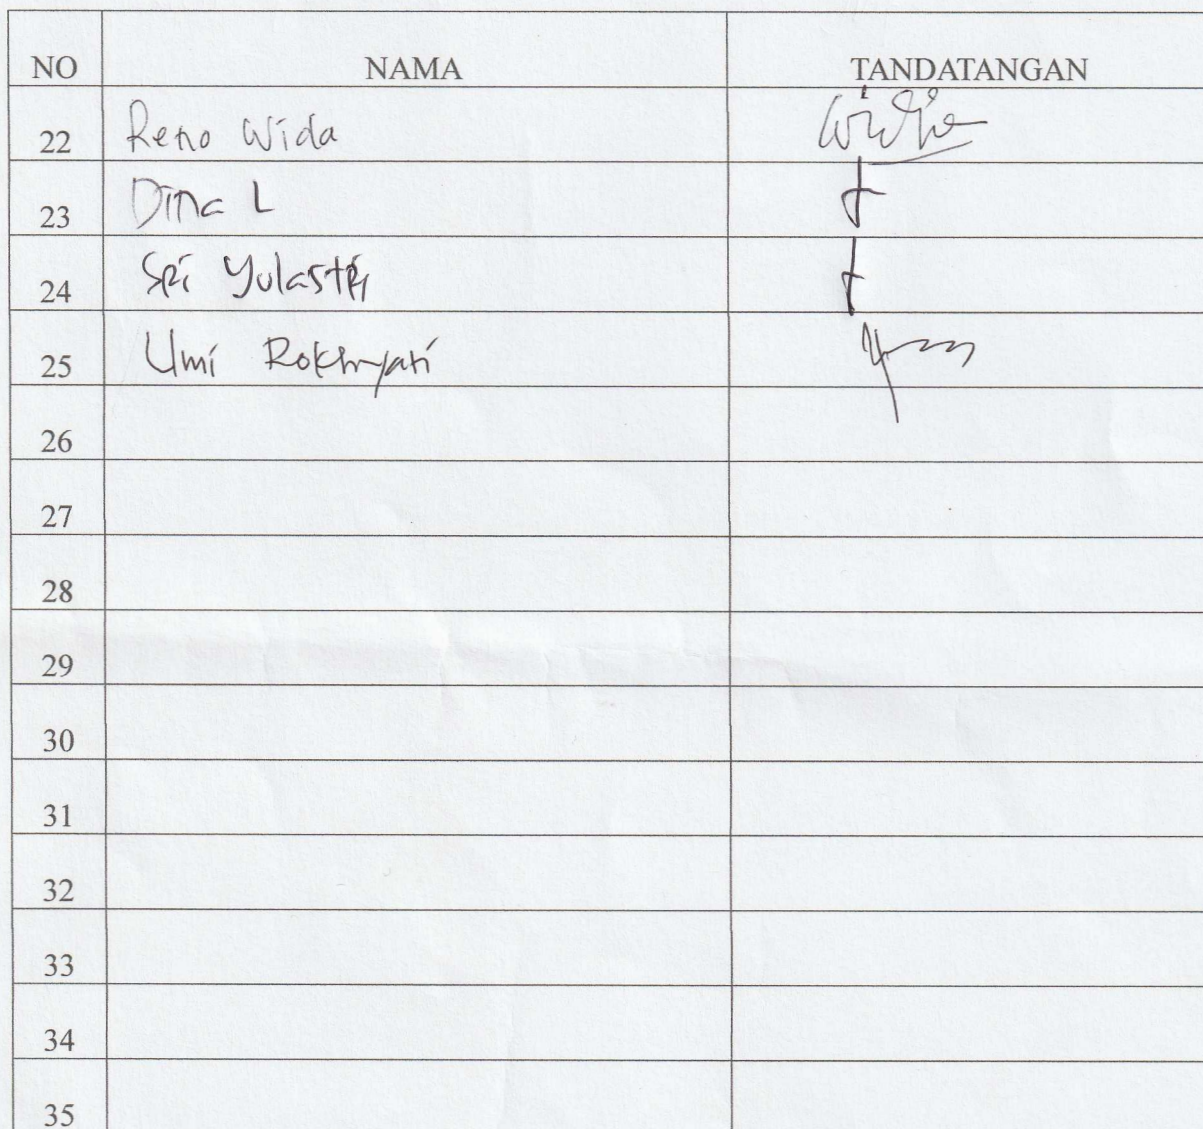 NO NAMA TANDATANGAN
22 Reno Wida
23 Dina L
24 Sri Yulastri
25 Umi Rokhyati
26
27
28
29
30
31
32
33
34
35